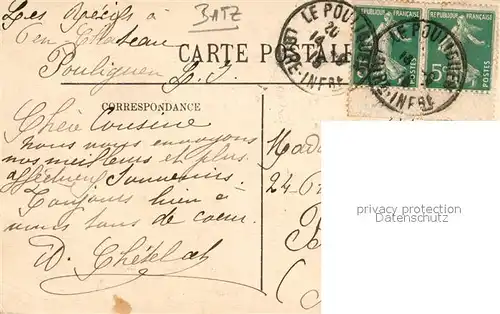 Les Récifs à
en Château
Pouliguen
L. I.
BATZ
CARTE POSTALE
LE POULIGUEN
20
LOIRE-INFRE
REPUBLIQUE FRANÇAISE
REPUBLIQUE FRANÇAISE
5c
LE POULIGUEN
LOIRE-INFRE
CORRESPONDANCE
Chère Cousine
nous vous envoyons
nos meilleurs et plus
affectueux souvenirs.
Toujours bien à
vous tous de coeur.
D. Chételat
Mad
24
privacy protection
Datenschutz